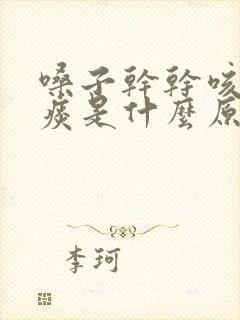 嗓子幹幹咳
痰是什麼原
李珂